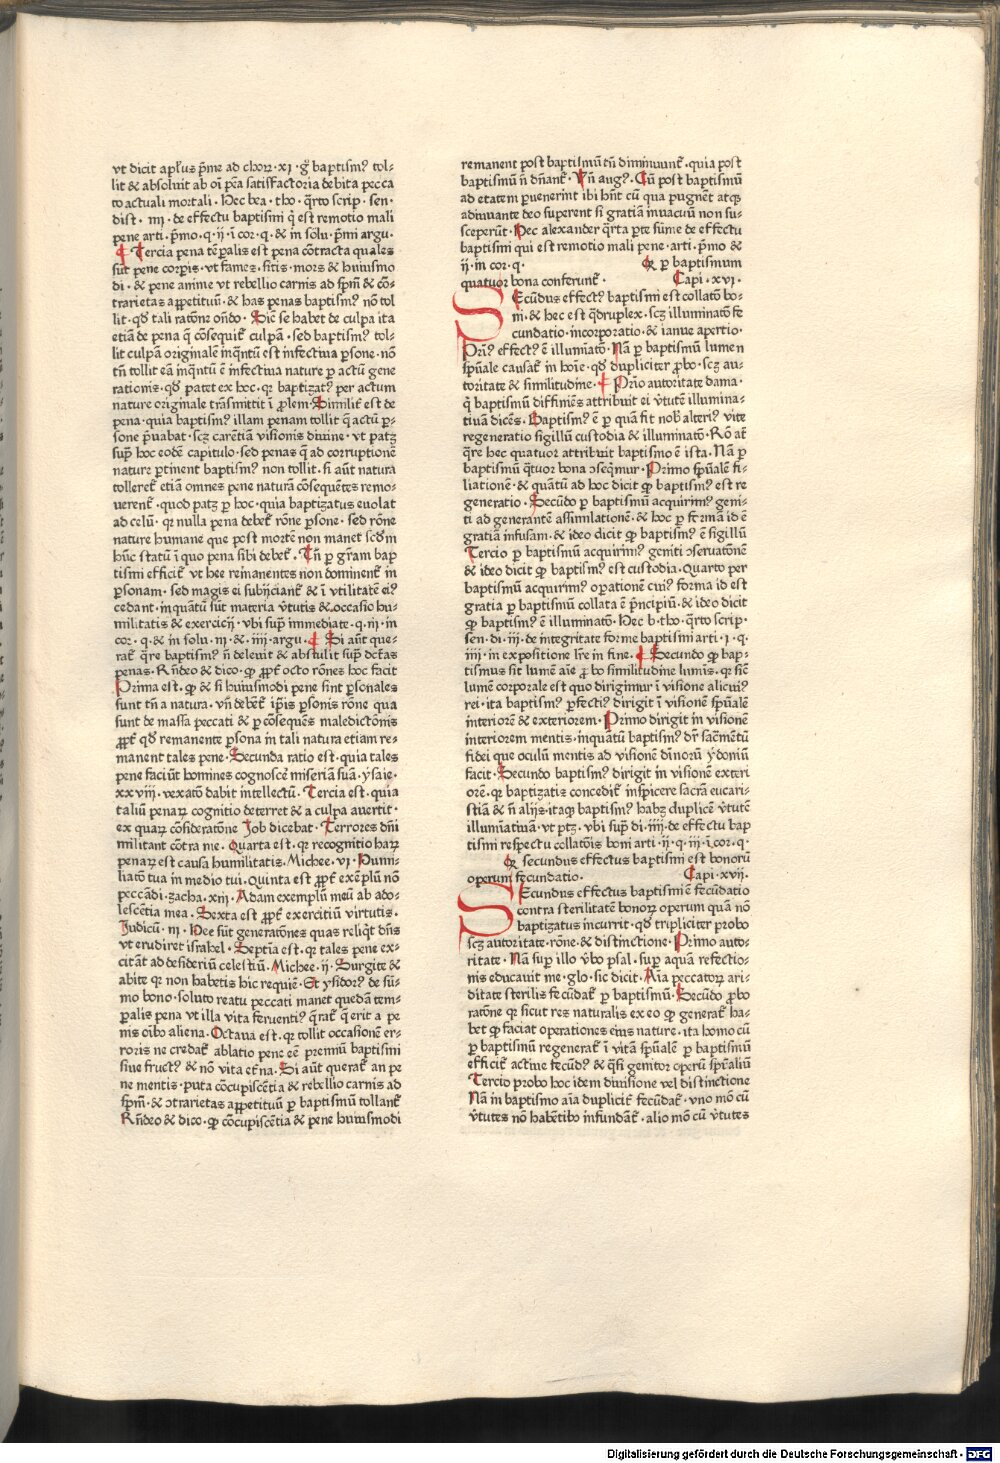 vt dicit apłus p̄me ad choꝝ · xi · g̊ baptismꝰ tol⸗
lit & absoluit ab oī pēa satisfactoria debita pecca
to actuali mortali · Hec bea · tho · q̄rto scrip · sen ·
dist · iiii · de effectu baptismi q̄ est remotio mali
pene arti · p̄mo · q · ii · ī cor · q · & in solu · p̄mi argu ·
¶ Tercia pena tēp̄alis est pena cōtracta quales
sūt pene corpis · vt fames · sitis · mors & huiusmo
di · & pene anime vt rebellio carnis ad sp̄m̄ & cō⸗
trarietas appetituū · & has penas baptismꝰ nō tol
lit · qđ tali ratōne oñdo · Sic̄ se habet de culpa ita
etiā de pena q̄ cōsequit̄ culpā · sed baptismꝰ tol⸗
lit culpā originale inq̄ntū est infectiua p̱sone · nō
tñ tollit eā inq̄ntū ē infectiua nature p̱ actū gene
rationis · qđ patet ex hoc · qꝛ baptizatꝰ per actum
nature originale trāsmittit ī p̱lem · Similit̄ est de
pena · quia baptismꝰ illam penam tollit q̄ actū p̱⸗
sone p̄uabat · scꝫ carētiā visionis diuine · vt patꝫ
sup̄ hoc eodē capitulo · sed penas q̄ ad corruptionē
nature p̱tinent baptismꝰ non tollit · si aūt natura
tolleret̄ etiā omnes pene naturā cōsequētes remo⸗
uerent̄ · quod patꝫ p̱ hoc · quia baptizatus euolat
ad celū · qꝛ nulla pena debet̄ rōne p̱sone · sed rōne
nature humane que post mortē non manet scđm
hūc statū ī quo pena sibi debet̄ · Tñ p̱ gr̄am bap
tismi efficit̄ vt hee remanentes non dominent̄ in
p̱sonam · sed magis ei subijciant̄ & ī vtilitatē eiꝰ
cedant · inquātū sūt materia v̄tutis & occasio hu⸗
militatis & exercicij · vbi sup̄ immediate · q · iii · in
cor · q · & in solu · iii · & · iiii · argu · ¶ Si aūt que⸗
rat̄ q̄re baptismꝰ ñ deleuit & abstulit sup̄ dc̄tas
penas · Rñdeo & dico · ꝙ p̱pt̄ octo rōnes hoc facit
Prima est · ꝙ & si huiusmodi pene sint p̱sonales
sunt tñ a natura · vñ debēt̄ ip̄is p̱sonis rōne qua
sunt de massa peccati & p̱ cōsequēs maledictōnis
p̱pt̄ qđ remanente p̱sona in tali natura etiam re⸗
manent tales pene · Secunda ratio est · quia tales
pene faciūt homines cognoscē miseriā suā · ysaie ·
xxviii · vexatō dabit intellectū · Tercia est · quia
taliū penaꝝ cognitio deterret & a culpa auertit ·
ex quaꝝ cōsideratōne Job dicebat · Terrores dñi
militant cōtra me · Quarta est · qꝛ recognitio haꝝ
penaꝝ est causa humilitatis · Michee · vi · Humi⸗
liatō tua in medio tui · Quinta est p̱pt̄ exēplū nō
peccādi · zacha · xiii · Adam exemplū meū ab ado⸗
lescētia mea · Sexta est p̱pt̄ exercitiū virtutis ·
Judicū · iii · Hee sūt generatōnes quas reliq̄t dñs
vt erudiret israhel · Septīa est · qꝛ tales pene ex⸗
citāt ad desideriū celestiū · Michee · ii · Surgite &
abite qꝛ non habetis hic requiē · Et ysidorꝰ de sū⸗
mo bono · soluto reatu peccati manet quedā tem⸗
p̱alis pena vt illa vita feruentiꝰ q̄rat̄ q̄ erit a pe
nis oībꝰ aliena · Octaua est · qꝛ tollit occasionē er⸗
roris ne credat̄ ablatio pene eē premiū baptismi
siue fructꝰ & nō vita et̄na · Si aūt querat̄ an pe
ne mentis · puta cōcupiscētia & rebellio carnis ad
sp̄m̄ · & ↄtrarietas appetituū p̱ baptismū tollant̄
Rñdeo & dico · ꝙ cōcupiscētia & pene huiusmodi
remanent post baptismū tñ diminuunt̄ · quia post
baptismū ñ dñant̄ · Vñ augꝰ · Cū post baptismū
ad etatem p̱uenerint ibi hñt cū qua pugnēt atqꝫ
adiuuante deo superent si gratiā inuacuū non su⸗
sceperūt · Hec alexander q̄rta p̱te sume de effectu
baptismi qui est remotio mali pene · arti · p̄mo &
ij · in cor · q ·
Qꝛ p̱ baptismum
quatuor bona conferunt̄ · Capi · xvi ·
SEcūdus effectꝰ baptismi est collatō bo⸗
ni · & hec est q̄druplex · scꝫ illuminatō fe
cundatio · incorporatio · & ianue apertio ·
Prīꝰ effectꝰ ē illumīatō · Nā p̱ baptismū lumen
sp̄uāle causat̄ in hoīe · qđ dupliciter p̱bo · scꝫ au⸗
toritate & similitudine · ¶ Prīo autoritate dama ·
q̄ baptismū diffiniēs attribuit ei v̄tutē illumina⸗
tiuā dicēs · Baptismꝰ ē p̱ quā fit nob̄ alteriꝰ vite
regeneratio sigillū custodia & illuminatō · Rō at̄
q̄re hec quatuor attribuit baptismo ē ista · Nā p̱
baptismū q̄tuor bona ↄseq̄mur · Primo sp̄uāle fi⸗
liationē · & quātū ad hoc dicit ꝙ baptismꝰ est re
generatio · Secūdo p̱ baptismū acquirimꝰ geni⸗
ti ad generantē assimilationē · & hoc p̱ formā id ē
gratiā infusam · & ideo dicit ꝙ baptismꝰ ē sigillū
Tercio p̱ baptismū acquirimꝰ geniti ↄseruatōnē
& ideo dicit ꝙ baptismꝰ est custodia · Quarto per
baptismū acquirimꝰ op̱ationē cuiꝰ forma id est
gratia p̱ baptismū collata ē p̄ncipiū · & ideo dicit
ꝙ baptismꝰ ē illuminatō · Hec b · tho · q̄rto scrip ·
sen · di · iii · de integritate forme baptismi arti · i · q ·
iiii · in expositione lr̄e in fine · ¶ Secundo ꝙ bap⸗
tismus sit lumē aīe p̱bo similitudine lumīs · qꝛ sic̄
lumē corporale est quo dirigimur ī visione alicuiꝰ
rei · ita baptismꝰ p̱fectiꝰ dirigit ī visionē sp̄uālē
interiorē & exteriorem · Primo dirigit in visionē
interiorem mentis · inquātū baptismꝰ dr̄ sac̄mētū
fidei que oculū mentis ad visionē diuinoꝝ ydoniū
facit · Secundo baptismꝰ dirigit in visionē exteri
orē · qꝛ baptizatis concedit̄ inspicere sacrā eucari⸗
stiā & ñ alijs · itaqꝫ baptismꝰ habꝫ duplicē v̄tutē
illumīatiuā · vt ptꝫ · vbi sup̄ di · iiii · de effectu bap
tismi respectu collatōis boni arti · ij · q · iii · ī cor · q ·
Qꝛ secundus effectus baptismi est bonorū
operum fecundatio · Capi · xvii ·
SEcundus effectus baptismi ē fecūdatio
contra sterilitatē bonoꝝ operum quā nō
baptizatus incurrit · qđ tripliciter probo
scꝫ autoritate · rōne · & distinctione · Primo auto⸗
ritate · Nā sup̄ illo v̄bo psal · sup̄ aquā refectio⸗
nis educauit me · glo · sic dicit · Aīa peccatoꝝ ari⸗
ditate sterilis fecūdat̄ p̱ baptismū · Secūdo p̱bo
ratōne qꝛ sicut res naturalis ex eo ꝙ generat̄ ha⸗
bet ꝙ faciat operationes eius nature · ita homo cū
p̱ baptismū regenerat̄ ī vitā sp̄uālē p̱ baptismū
efficit̄ actiue fecūdꝰ & q̄si genitor operū sp̄ualiū
Tercio probo hoc idem diuisione vel distinctione
Nā in baptismo aīa duplicit̄ fecūdat̄ · vno mō cū
v̄tutes nō habētibꝰ infundāt̄ · alio mō cū v̄tutes
Digitalisierung gefördert durch die Deutsche Forschungsgemeinschaft - DFG